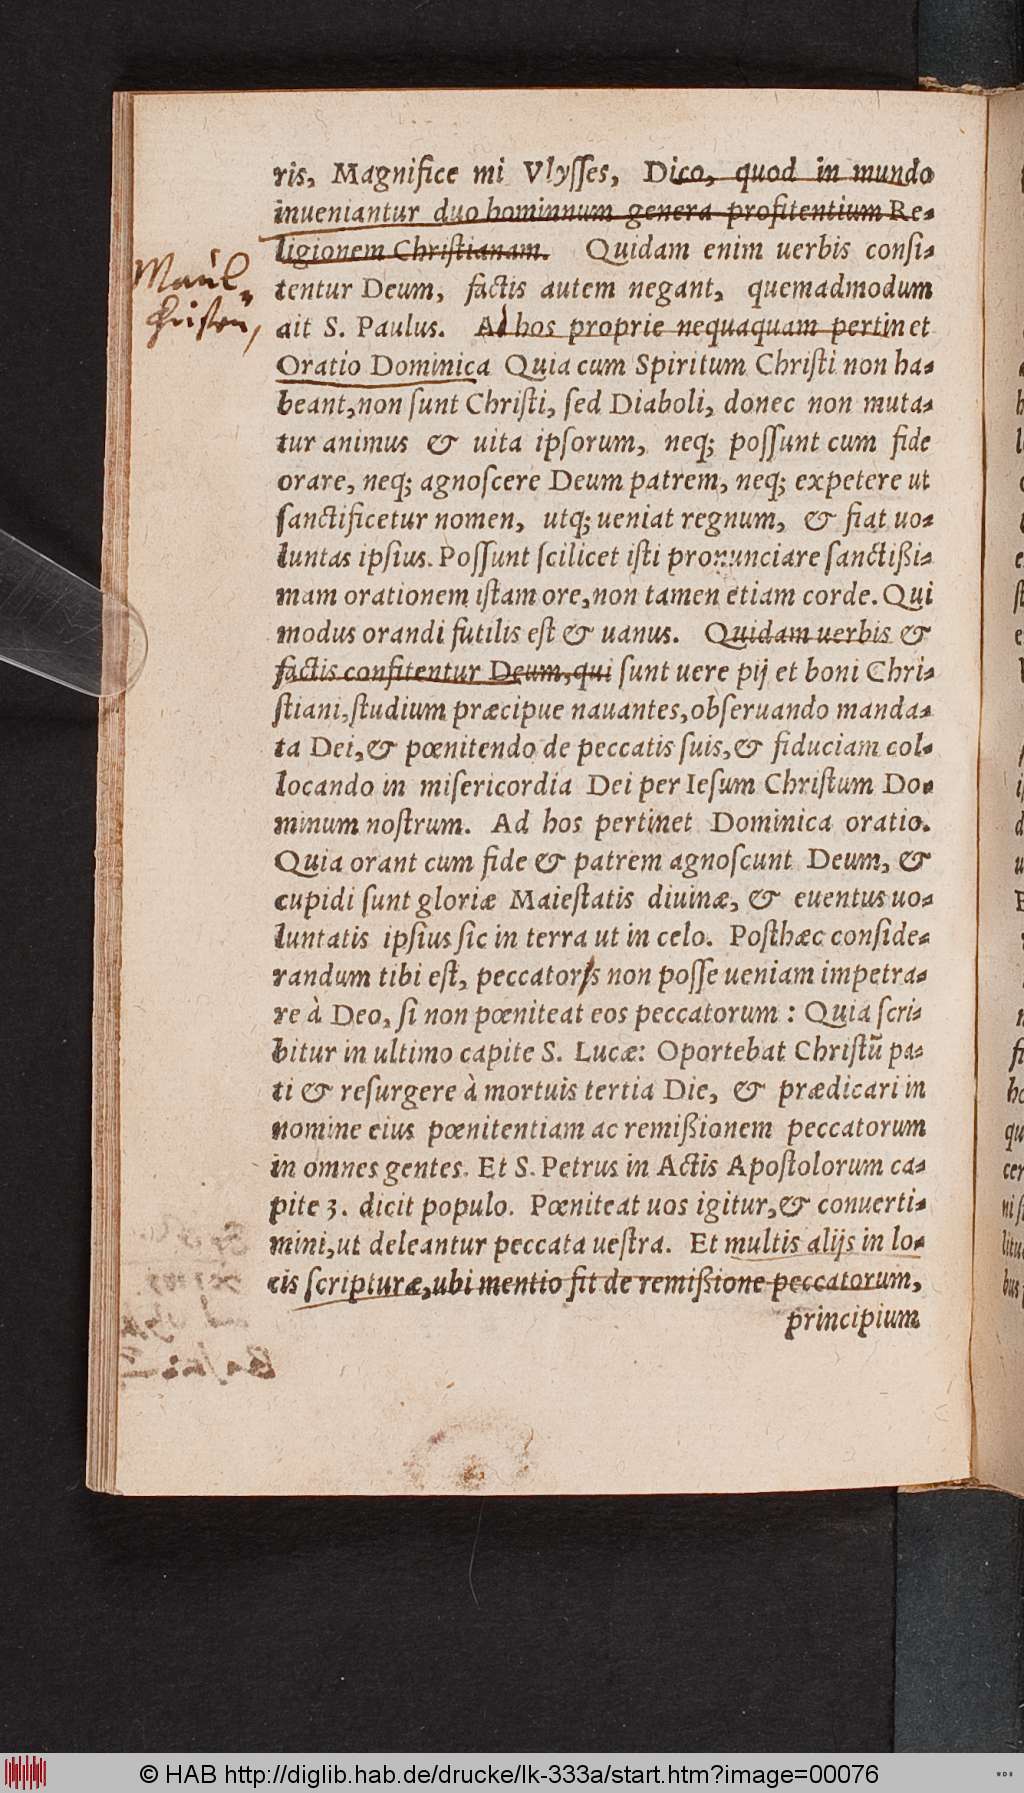 ris, Magnifice mi Vlyſſes, Dico, quod in mundo
inueniantur duo hominnum genera profitentium Re⸗
ligionem Chriſtianam. Quidam enim uerbis confi⸗
tentur Deum, factis autem negant, quemadmodum
ait S. Paulus. Ad hos proprie nequaquam pertinet
Oratio Dominica Quia cum Spiritum Chriſti non ha⸗
beant, non ſunt Chriſti, ſed Diaboli, donec non muta⸗
tur animus & uita ipſorum, neq; poſſunt cum fide
orare, neq; agnoſcere Deum patrem, neq; expetere ut
ſanctificetur nomen, utq; ueniat regnum, & fiat uo⸗
luntas ipſius. Poſſunt ſcilicet iſti pronunciare ſanctißi⸗
mam orationem iſtam ore, non tamen etiam corde. Qui
modus orandi futilis eſt & uanus. Quidam uerbis &
factis confitentur Deum, qui ſunt uere pij et boni Chri⸗
ſtiani, ſtudium præcipue nauantes, obſeruando manda⸗
ta Dei, & pœnitendo de peccatis ſuis, & fiduciam col⸗
locando in miſericordia Dei per Ieſum Chriſtum Do⸗
minum noſtrum. Ad hos pertinet Dominica oratio.
Quia orant cum fide & patrem agnoſcunt Deum, &
cupidi ſunt gloriæ Maieſtatis diuinæ, & euentus uo⸗
luntatis ipſius ſic in terra ut in celo. Poſthæc conſide⸗
randum tibi eſt, peccatores non poſſe ueniam impetra⸗
re à Deo, ſi non pœniteat eos peccatorum : Quia ſcri⸗
bitur in ultimo capite S. Lucæ: Oportebat Chriſtū pa⸗
ti & reſurgere à mortuis tertia Die, & prædicari in
nomine eius pœnitentiam ac remißionem peccatorum
in omnes gentes. Et S. Petrus in Actis Apoſtolorum ca⸗
pite 3. dicit populo. Pœniteat uos igitur, & conuerti⸗
mini, ut deleantur peccata ueſtra. Et multis alijs in lo⸗
cis ſcripturæ, ubi mentio fit de remißione peccatorum,
principium
Maul⸗
christen,
© HAB http://diglib.hab.de/drucke/lk-333a/start.htm?image=00076